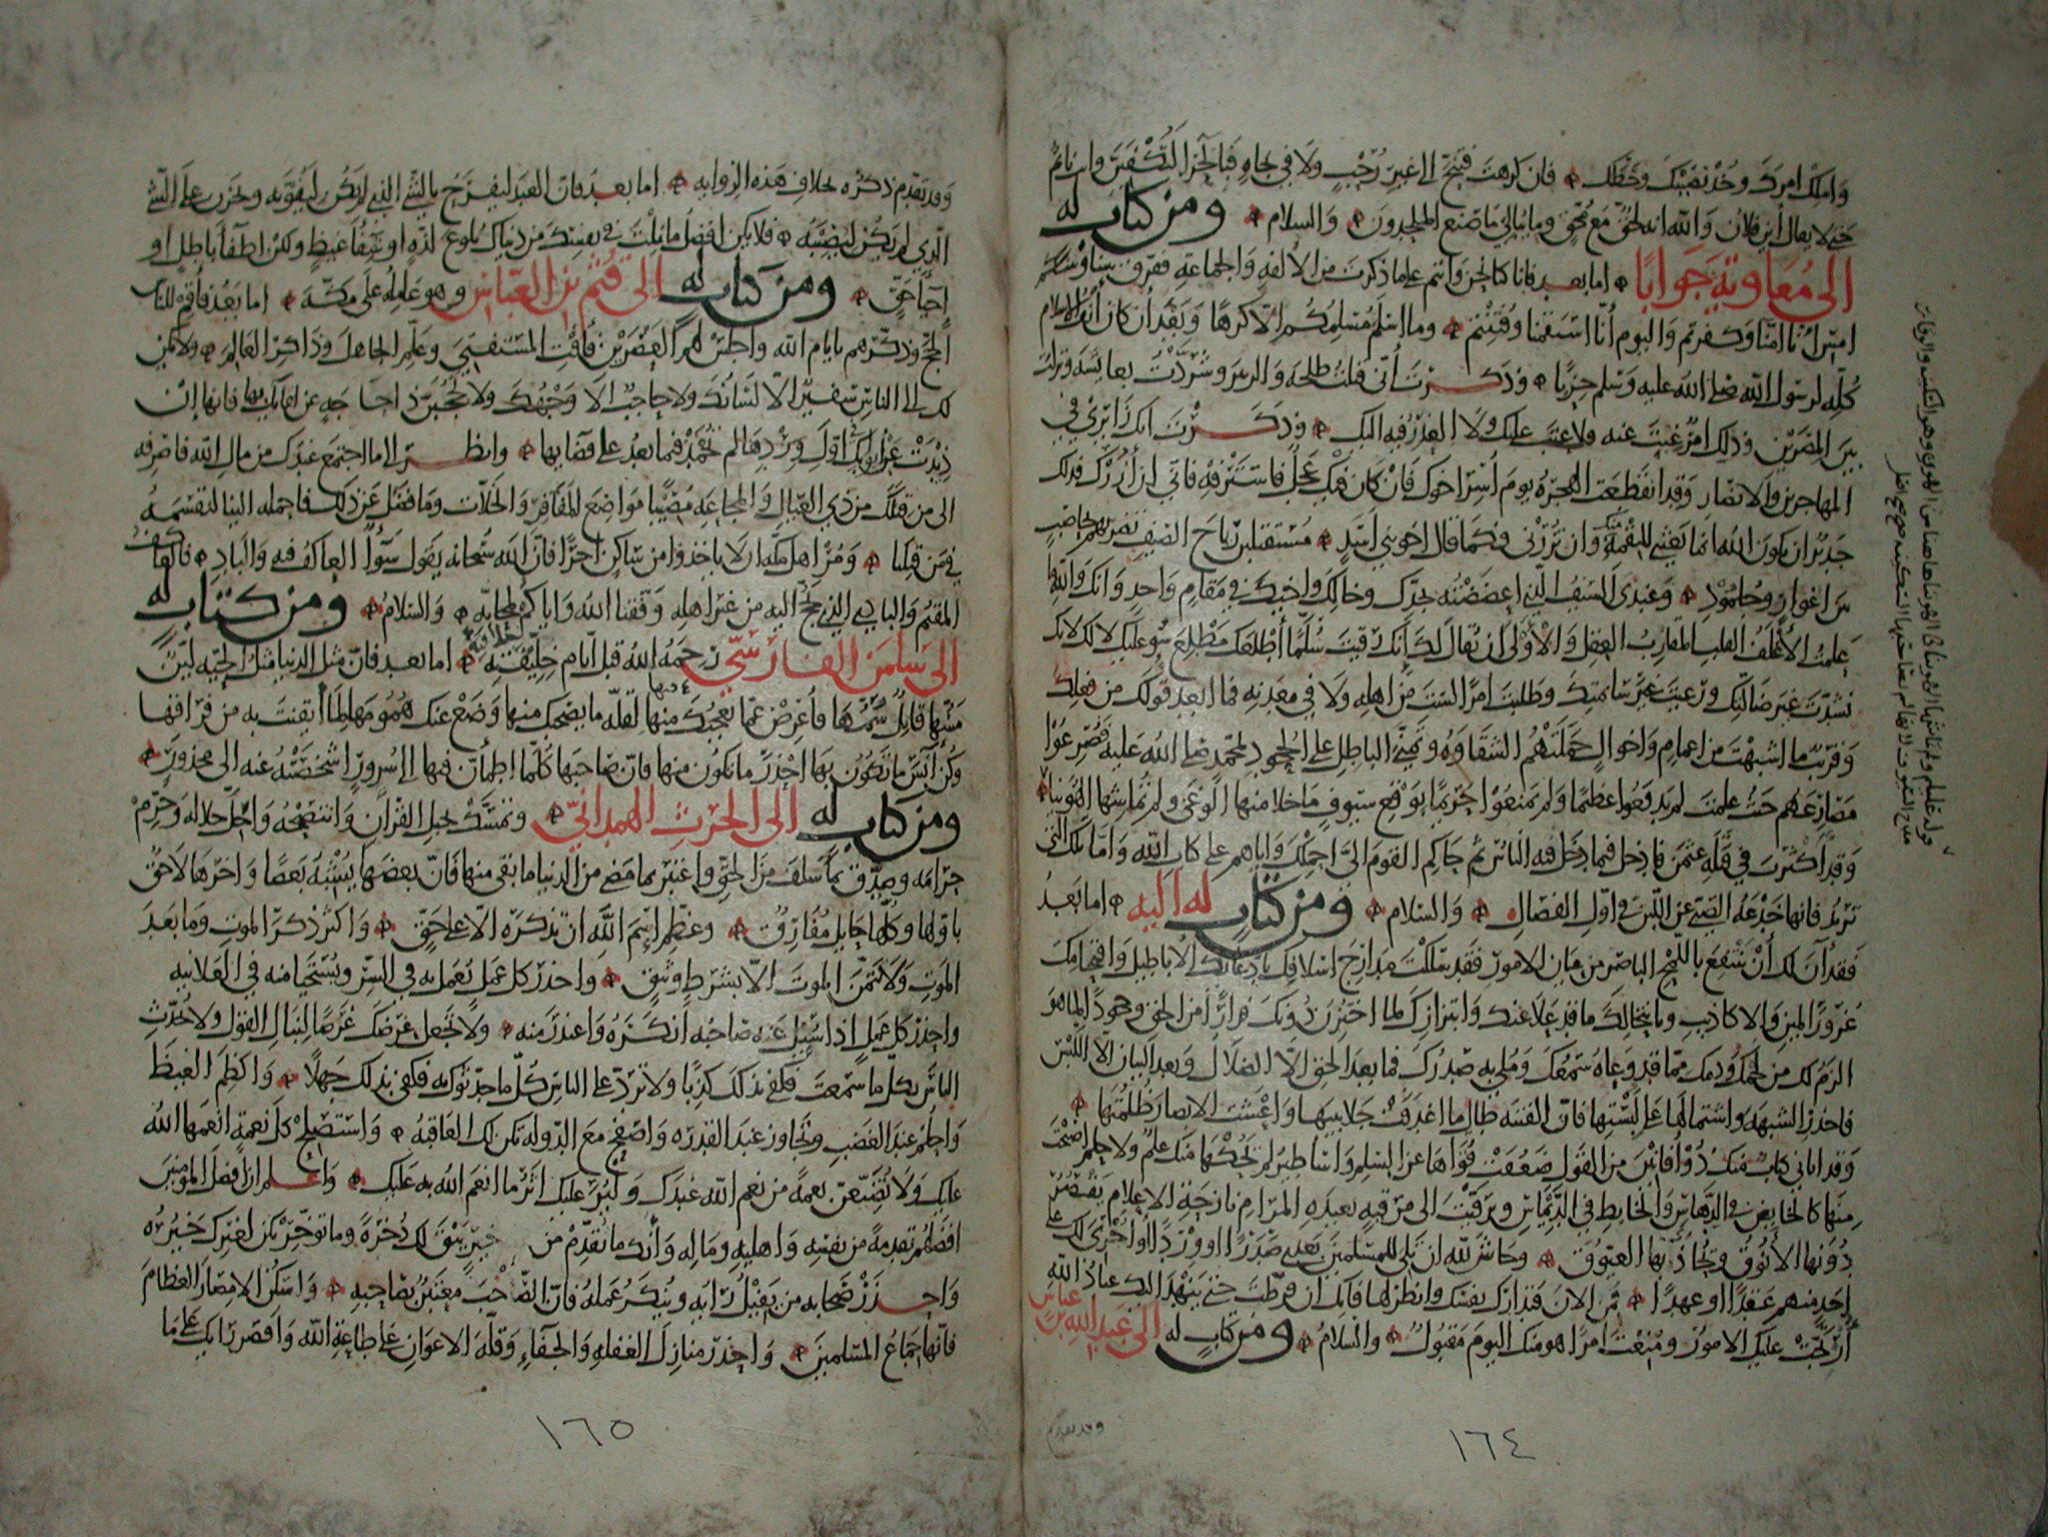 وَاملك امرك وخذ نصيبك وحظك فان كرهت فتنح الى غير رُحْبٍ ولا في نجاهٍ فبالحرا لتُكْفَيَنَّ وانت نائم
حتى لا يقال اين فلان وَالله انه لحقٌّ مَعَ مُحِقٍّ وما يبالي ما صنع الملحدون والسلام ومن كتابٍ له
الى مُعَاوِيَةَ جَوابًا اما بعد فانا كنا نحن وانتم على ما ذكرت من الالفه وَالجماعه ففرق بيننا وبينكم
امس انّا امنّا وكفرتم وَاليوم انّا استقمنا وفُتِنتم وما اسلم مسلمكم الا كرها وَبعد أن كان أنف الاسلام
كلّه لرسول الله صلى الله عليه وَسلم حزبا وذكرت أنى قتلت طلحه وَالزبير وشرّدْتُ بعائشه ونزلت
بين المِصْرَيْن وذلك امرٌ غبت عنه فلا عليك ولا العذر فيه اليك وذكرت انك زائري في
المهاجرين والانصار وَقد انقطعت الهجره يوم أُسِرَ اخوك فان كان فيك عجل فاسترفه فانى ان أزُرْك فذلك
جَديرٌ ان يكون الله انما بعثنى للنقمة منك وان تزرنى فكما قال اخو بنى اسد مستقبلين رياح الصيف تضربهم بحاصب
بين اغوار وجلمود وَعندى السيف الذي اعضضته بجدك وخالك واخيك في مقام واحد وَانك وَالله ما
علمت الأغلف القلب المقارب العقل وَالأولى ان يقال لك إنك رقيت سلّمًا أطلعك مطلع سوءٍ عليك لا لك لانك
نشدت غير ضالّتك ورعيت غير سائمتك وطلبت امرًا لست من اهله ولا في معدنه فما ابعد قولك من فعلك
وَقريبٌ ما اشبهت من اعمام وَاخوال حملتهم الشقاوه وتمنّي الباطل على الجحود لمحمد صلى الله عليه فصرعوا
مصارعهم حيث علمت لم يدفعوا عظيما ولم يمنعوا حريما بوقع سيوفٍ ما خلا منها الوغى ولم تماشها الهوينا
وَقد أكثرت في قتله عثمن فادخل فيما دخل فيه الناس ثم حاكم القوم الىّ احملك وَاياهم على كتاب الله وَامّا تلك التي
تريد فانها خدعه الصبى عن اللبن في اوّل الفصال وَالسلام ومن كتابٍ له اليه اما بعدُ
فقد آن لك أنْ تنتفع باللمح الباصر من عيان الامور فقد سلكت مدارج اسلافك بادعائك الاباطيل وَاقتحامك
غرور المين وَالاكاذيب وبانتحالك ما قد علا عنك وَابتزازك لما اختزن دونك فرارًا من الحق وجحودًا لما هو
الزم لك من لحمك ودمك مما قد وعاه سمعك وَملى به صدرك فما بعد الحق الا الضلال وَبعد البيان الا اللبس
فاحذر الشبهه واشتمالها على لبستها فانّ الفتنه طال ما اغدفت جلابيبها وَاغشت الابصار ظلمتها
وَقد اتانى كتاب منك ذو أفانين من القول ضعفت قواها عن السلم وَاساطير لم يحكها منك علم ولا حلم اصبحت
منها كالخايض في الدهاس وَالخابط في الديماس وترقيت الى مرقبه بعيده المرام نازحة الاعلام يقصُر
دُونها الأنوق ويحاذى بها العيّوق وحاش لله ان تلى للمسلمين بعدى صدرًا او وردًا او أجرى لك على
احدٍ منهم عقدًا او عهدًا فمن الان فتدارك نفسك وانظر لها فانك ان فرّطت حتى ينهد اليك عباد الله
أُرتِجَتْ عليك الامور ومنعت امرًا هو منك اليوم مقبول والسلام ومن كتاب له الى عبد الله بن عباس
وقد تقدم
١٦٤
وَقد تقدم ذكره بخلاف هذه الروايه اما بعد فان العبد ليفرح بالشئ الذي لم يكن ليفوته ويحزن على الشئ
الذي لم يكن ليصيبه فلا يكن افضل ما نلت في نفسك من دنياك بلوغ لذهٍ او شفاء غيظٍ ولكن اطفاء باطل او
احيا حقٍّ ومن كتابٍ له الى قُثَم بن العبّاس وهو عامله على مكّة اما بعدُ فأقم للناس
الحج وذكّرهم بايام الله واجلس لهم العصرين فأفت المستفتى وعلّم الجاهل وذاكر العالم ولا يكن
لك الى الناس سفيرٌ الا لسانك ولا حاجبٌ الا وجهك ولا تحجبنّ ذا حاجهٍ عن لقائك بها فانها إنْ
ذيدت عن أبوابك في اوّل وِردها لم تحمد فيما بعدُ على قضايها وانظر الى ما اجتمع عندك من مال الله فاصرفه
الى من قبلك من ذي العيال وَالمجاعه مصيبا مواضع المفاقر وَالخلات وما فضل عن ذلك فاحمله الينا لنقسمه
فيمن قبلنا وَمُرْ اهل مكه ان لا ياخذوا من ساكن اجرًا فانّ الله سُبحانه يقول سوآءً العاكف فيه وَالباد فالعاكف
المقيم وَالبادى الذي يحج اليه من غير اهله وَفقنا الله وَاياكم لمحابّه وَالسّلام ومن كتاب له
الى سلمن الفارسيّ رحمه الله قبل ايّام خلافته اما بعد فانّ مثل الدنيا مثل الحيّه ليّنٌ
مسّها قاتلٌ سُمُّها فأعرض عمّا يعجبك فيها لقلّه ما يصحبك منها وَضع عنك همومها لما أيقنت به من فراقها
وكن آنس ما تكون بها احذر ما تكون منها فانّ صاحبها كلّما اطمأنّ فيها الى سرور أشخصته عنه الى محذورٍ
ومن كتاب له الى الحرث الهمدانيّ وتمسّك بحبل القرآن وَانتصحه وَاحلّ حلاله وَحرّم
حرامه وصدّق بما سلف من الحقّ وَاعتبر بما مضى من الدنيا ما بقى منها فانّ بعضها يشبه بعضًا وَاخرها لاحق
باوّلها وكلّها حايل مفارق وعظّم اسم الله ان تذكره الا على حقٍّ وَاكثر ذكر الموت وما بعد
الموت وَلا تتمنّ الموت الا بشرطٍ وثيق واحذر كل عمل يُعمل به في السرّ ويستحيا منه في العلانيه
واحذر كل عملٍ اذا سئل عنه صاحبه انكره وَاعتذر منه ولا تجعل عرضك غرضًا لنبال القول ولا تحدّث
الناس بكلّ ما سمعت فكفى بذلك كذبًا ولا تردّ على الناس كلّ ما حدّثوك به فكفى بذلك جهلًا وَاكظم الغيظ
وَاحلم عند الغضب وتجاوز عند القدره وَاصفح مع الدوله تكن لك العاقبه وَاستصلح كل نعمة انعمها الله
عليك وَلا تضيّعنّ نعمةً من نعم الله عندك وَليُرَ عليك اثر ما انعم الله به عليك وَاعلم ان افضل المومنين
افضلهم تقدمةً من نفسه وَاهله وماله وَأنك ما تقدّم من خيرٍ يبق لك ذخره وما توخّره يكن لغيرك خيرُه
وَاحذر صحابه من يفيل رايه وينكر عمله فانّ الصاحب معتبر بصاحبه وَاسكن الامصار العظام
فانها جماع المسلمين وَاحذر منازل الغفله وَالجفاء وَقلّه الاعوان على طاعة الله وَاقصر رايك على ما
١٦٥